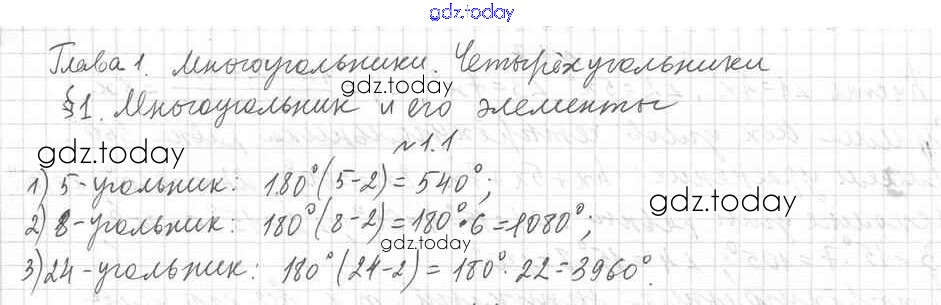 gdz.today
Глава 1. Многоугольники. Четырёхугольники
gdz.today
§1. Многоугольник и его элементы
gdz.today
№1.1
1) 5-угольник: 180°(5-2)=540°;
gdz.today
2) 8-угольник: 180°(8-2)=180°·6=1080°;
gdz.today
3) 24-угольник: 180°(24-2)=180°·22=3960°.